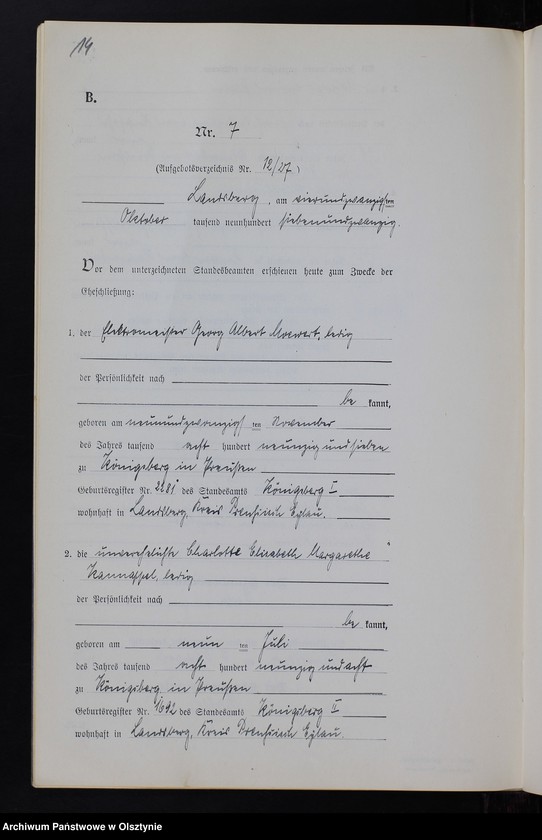 14
B.
Nr. 7
(Aufgebotsverzeichnis Nr. 12/27)
Landsberg, am vierundzwanzigsten
Oktober tausend neunhundert siebenundzwanzig.
Vor dem unterzeichneten Standesbeamten erschienen heute zum Zwecke der
Eheschließung:
1. der Elektromeister Georg Albert Moewert, ledig
der Persönlichkeit nach
be kannt,
geboren am neunundzwanzigsten November
des Jahres tausend acht hundert neunzig und sieben
zu Königsberg in Preußen
Geburtsregister Nr. 2281 des Standesamts Königsberg I
wohnhaft in Landsberg, Kreis Preußisch Eylau.
2. die unverehelichte Charlotte Elisabeth Margarethe
Kannappel, ledig
der Persönlichkeit nach
be kannt,
geboren am neun ten Juli
des Jahres tausend acht hundert neunzig und acht
zu Königsberg in Preußen
Geburtsregister Nr. 1692 des Standesamts Königsberg II
wohnhaft in Landsberg, Kreis Preußisch Eylau.
Archiwum Państwowe w Olsztynie